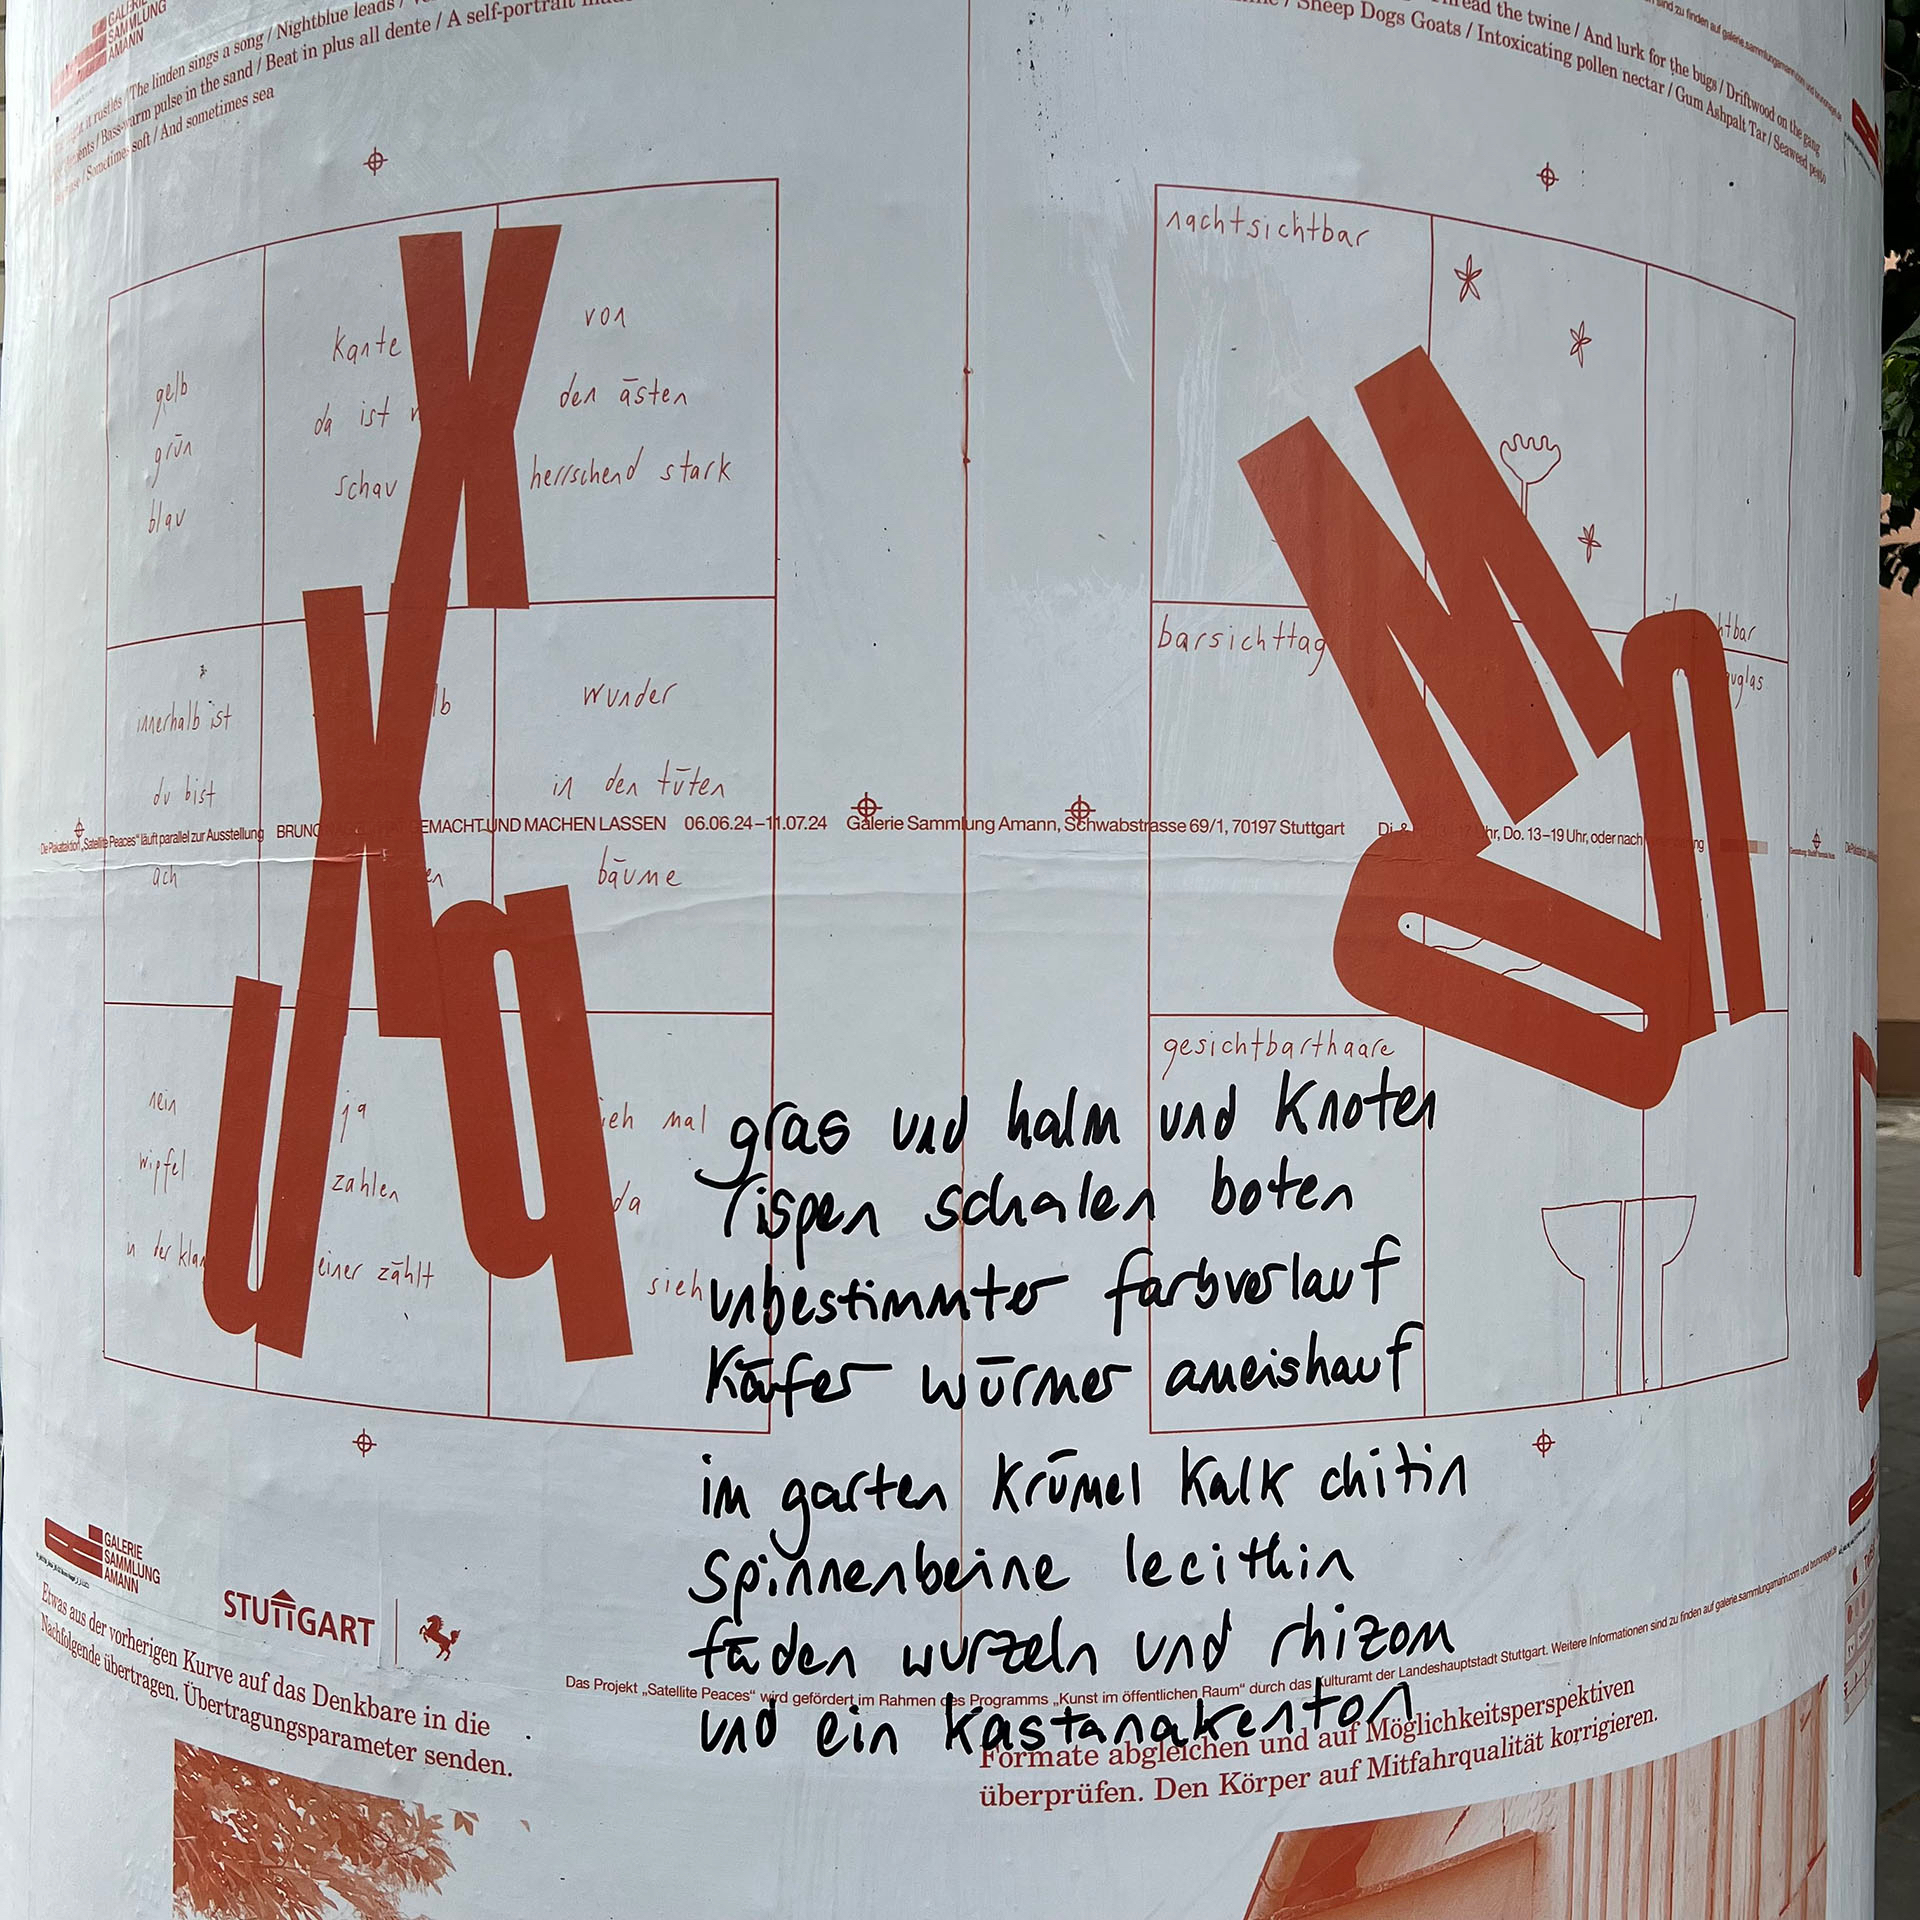 GALERIE
SAMMLUNG
AMANN
The linden sings a song / Nightblue leads /
pulse in the sand / Beat in plus all dente / A self-portrait
Sometimes soft / And sometimes sea
Sheep Dogs Goats / Intoxicating pollen nectar / Gum Ashpalt Tar / Seaweed
the twine / And lurk for the bugs / Driftwood on the gang
gelb
grün
blau
Kante
da ist
schau
von
den ästen
herrschend stark
innerhalb ist
du bist
ach
wunder
in den tüten
bäume
nein
wipfel
in der
ja
zahlen
einer zählt
mal
da
sieh
nachtsichtbar
barsichttag
gesichtbarthaare
X
X
u
q
M
Die Plakataktion „Satellite Peaces“ läuft parallel zur Ausstellung
GEMACHT UND MACHEN LASSEN 06.06.24–11.07.24 Galerie Sammlung Amann, Schwabstrasse 69/1, 70197 Stuttgart
Do. 13–19 Uhr, oder nach
gras und halm und Knoten
rispen schalen boten
unbestimmter farbverlauf
Käfer würmer ameishauf
im garten Krümel Kalk chitin
spinnenbeine lecithin
fäden wurzeln und rhizom
und ein Kastanakenton
GALERIE
SAMMLUNG
AMANN
STUTTGART
Das Projekt „Satellite Peaces“ wird gefördert im Rahmen des Programms „Kunst im öffentlichen Raum“ durch das Kulturamt der Landeshauptstadt Stuttgart. Weitere Informationen sind zu finden auf galerie.sammlungamann.com und brunonagel.de
Etwas aus der vorherigen Kurve auf das Denkbare in die
Nachfolgende übertragen. Übertragungsparameter senden.
Formate abgleichen und auf Möglichkeitsperspektiven
überprüfen. Den Körper auf Mitfahrqualität korrigieren.